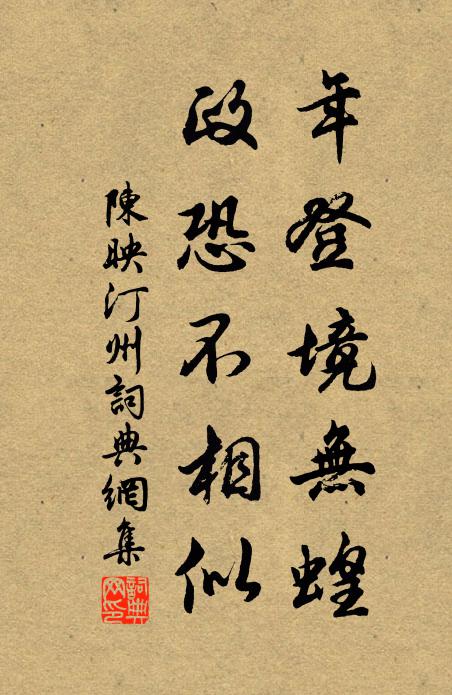 年登境無蝗
政恐不相似
陳映汀州詞典網集
詞典网印